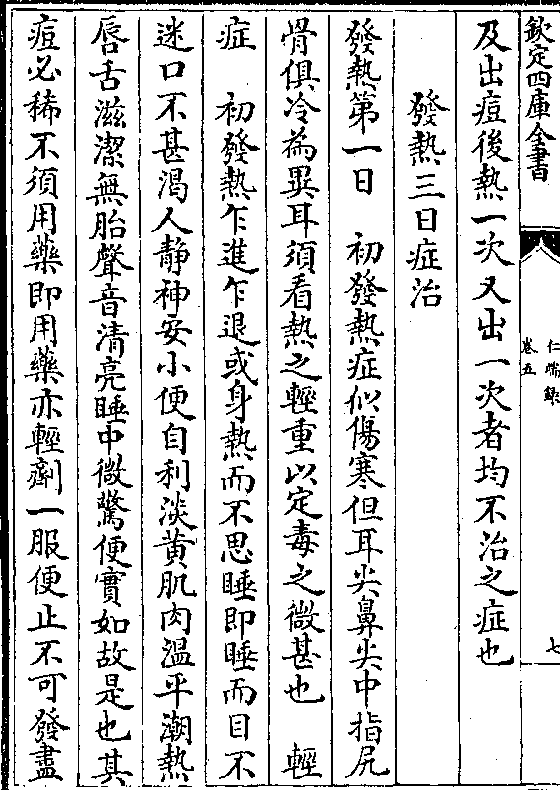 欽定四庫全書
仁端錄
卷五
七
及出痘後熱一次又出一次者均不治之症也
發熱三日症治
發熱第一日　初發熱症似傷寒但耳尖鼻尖中指尻
骨俱冷為異耳須看熱之輕重以定毒之微甚也　輕
症　初發熱乍進乍退或身熱而不思睡即睡而目不
迷口不甚渴人静神安小便自利淡黄肌肉温平潮熱
唇舌滋潔無胎聲音清亮睡中微驚便實如故是也其
痘必稀不須用藥即用藥亦輕劑一服便止不可發盡